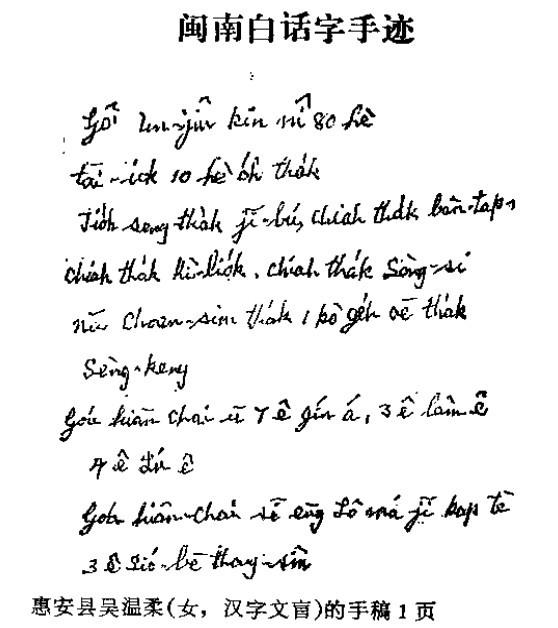 闽南白话字手迹
Gôi Un-jiû kin nî 80 hè
tāi-iok 10 hè óh thák
Tióh seng thák jī-bú, chiah thák būn-tap,
chiah thák kì-liók, chiah thák Sòng-si
nā choan-sim thák 1 kò géh oē thák
Sèng-keng
Góa hiān chai ū 7 ê gín á, 3 ê lâm ê
4 ê lú ê
Góa hiān-chai sī ēng Lô má jī kap tē
3 ê sió-bē thong-sìn
惠安县吴温柔(女，汉字文盲)的手稿1页